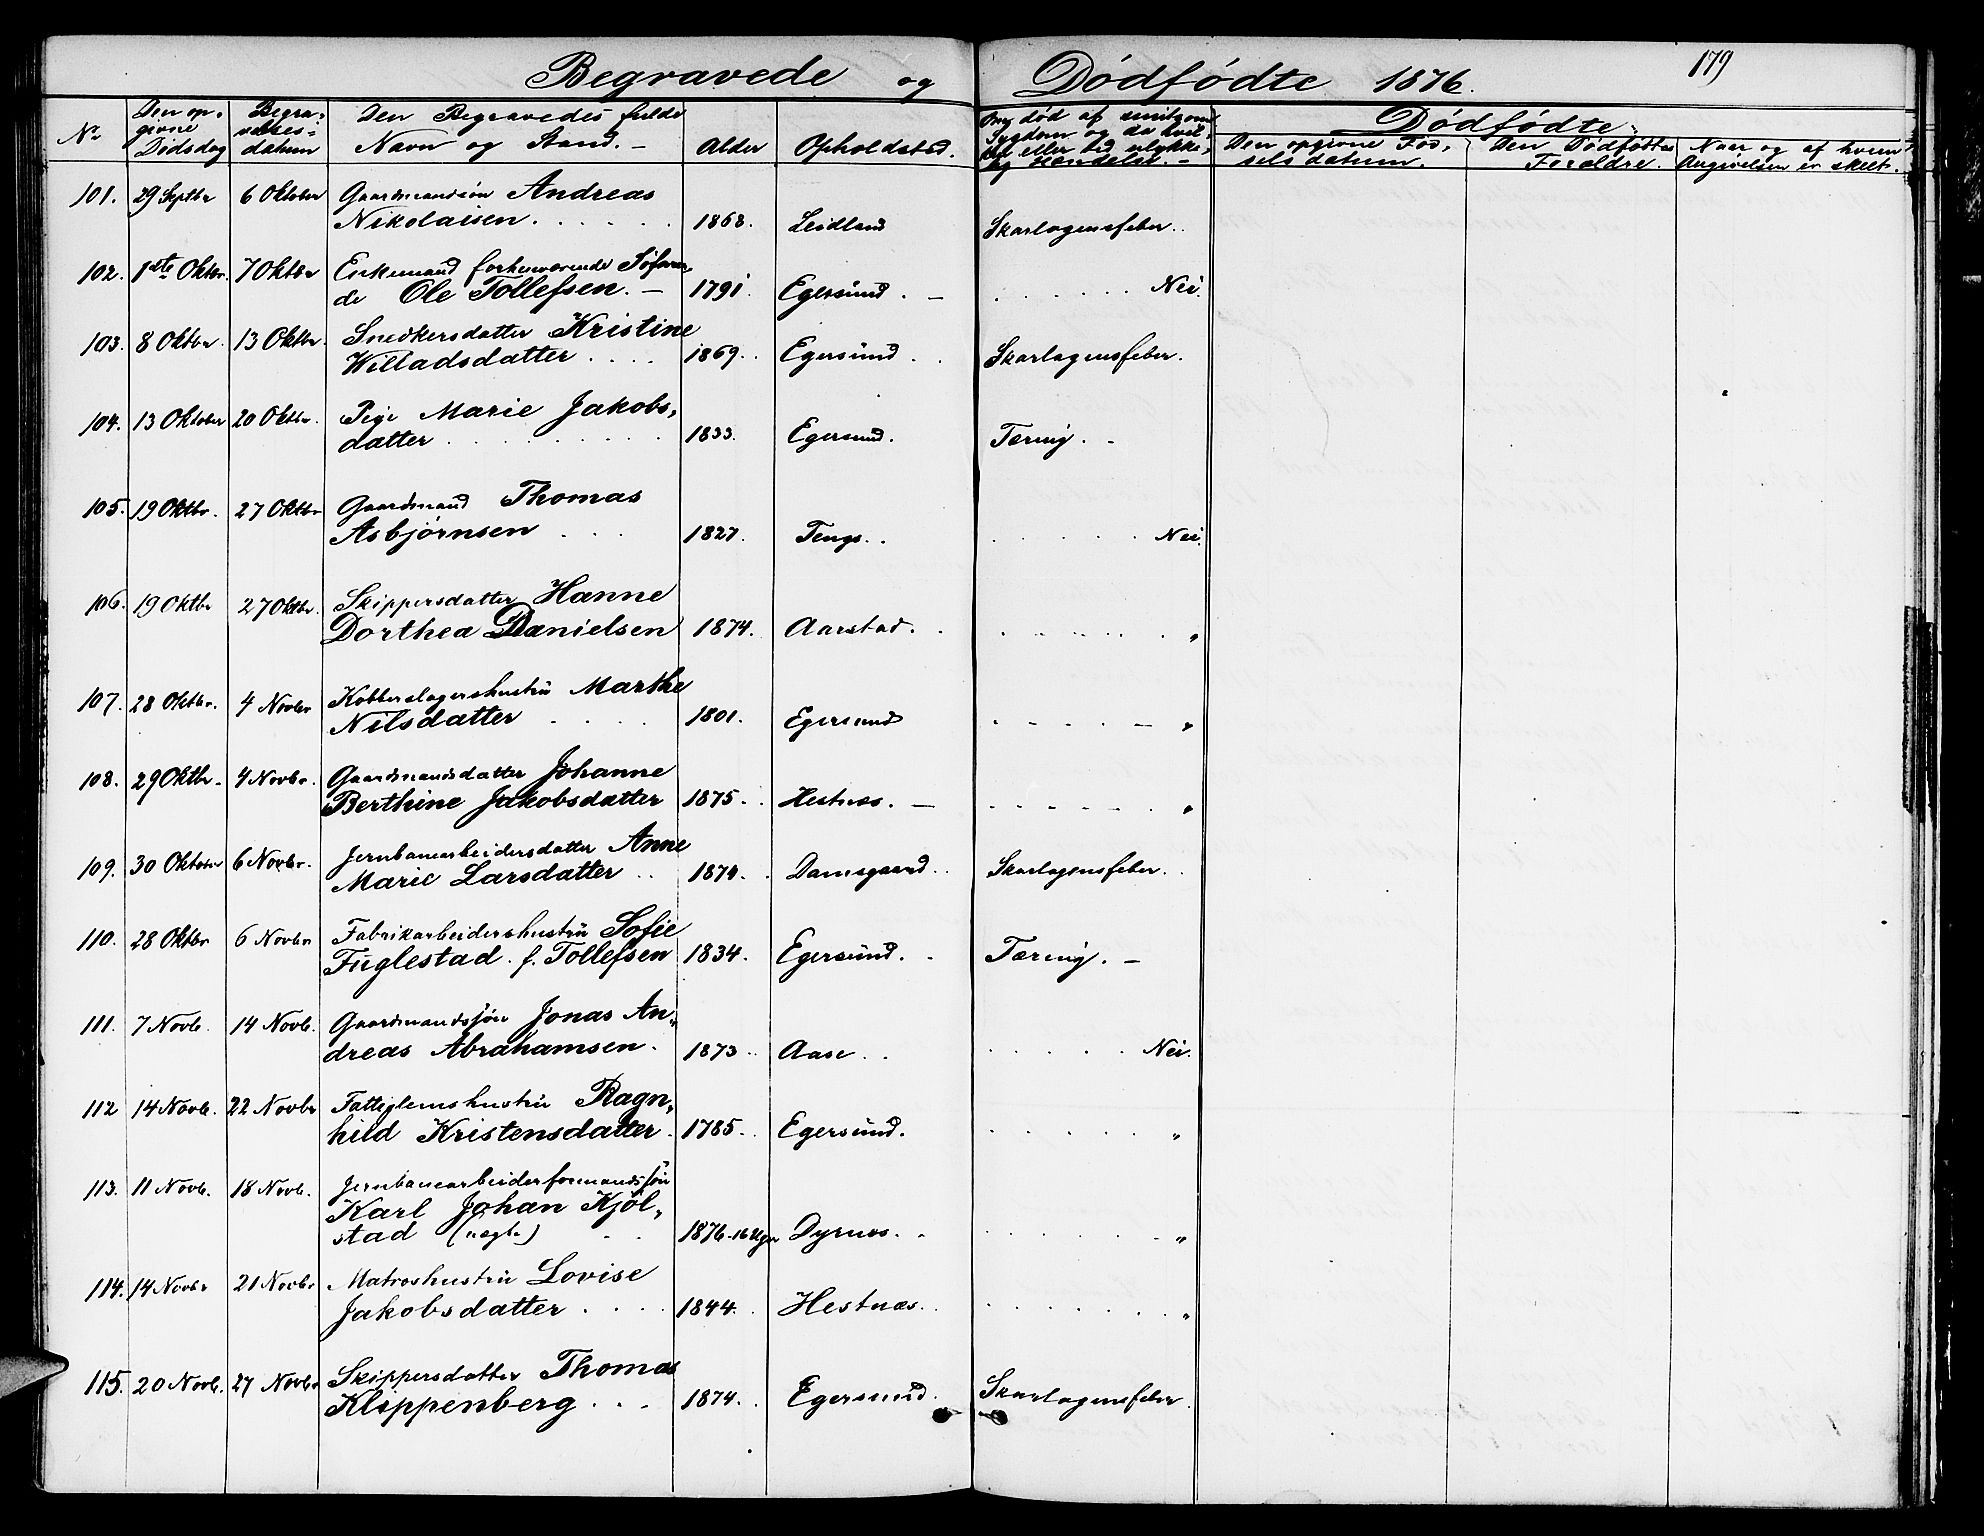 179
Begravede og Dødfødte 1876.
No
Den op-
givne
Dødsdag
Begra-
velses-
datum
Den Begravedes fulde
Navn og Stand. —
Alder
Opholdsted.
Om død af smitsom
Sygdom og da hvil-
ken eller ved ulykke-
lig Hændelse. —
Dødfødte.
Den opgivne Fød-
selsdatum.
Den Dødfødtes
Forældre.
Naar og af hvem
Angivelsen er skeet.
101. 29 Septbr 6 Oktober Gaardmandsøn Andreas
Nikolaisen 1868. Leidland Skarlagensfeber.
102. 1ste Oktbr. 7 Oktbr Enkemand forhenværende Søfaren
de Ole Tollefsen. — 1791. Egersund. — Nei.
103. 8 Oktbr 13 Oktbr. Snedkersdatter Kristine
Willadsdatter 1869. Egersund Skarlagensfeber.
104. 13 Oktober 20 Oktbr. Pige Marie Jakobs-
datter 1833. Egersund. Tæring. -
105. 19 Oktbr. 27 Oktbr Gaardmand Thomas
Asbjørnsen 1827. Tengs. Nei.
106. 19 Oktbr 27 Oktbr. Skippersdatter Hanne
Dorthea Danielsen 1874. Aarstad. "
107. 28 Oktbr. 4 Novbr Kobberslagershustru Marthe
Nilsdatter 1801. Egersund "
108. 29 Oktbr. 4 Novbr. Gaardmandsdatter Johanne
Berthine Jakobsdatter 1875. Hestnæs. — "
109. 30 Oktober 6 Novbr. Jernbanearbeidersdatter Anne
Marie Larsdatter 1874. Damsgaard. Skarlagensfeber.
110. 28 Oktbr 6 Novbr Fabrikarbeidershustru Sofie
Fuglestad. f. Tollefsen 1834. Egersund. Tæring. —
111. 7 Novb. 14 Novb. Gaardmandssøn Jonas An-
dreas Abrahamsen. 1873 Aase Nei.
112 14 Novb. 22 Novbr Fattiglemshustru Ragn-
hild Kristensdatter. 1785. Egersund. "
113. 11 Novb. 18 Novb. Jernbanearbeiderformandssøn
Karl Johan Kjøl-
stad (uægte) 1876-16 Uger Dyrnes. "
114. 14 Novbr 21 Novbr Matroshustru Lovise
Jakobsdatter 1844. Hestnæs. "
115. 20 Novb. 27 Novbr Skippersdatter Thomas
Klippenberg 1874. Egersund. Skarlagensfeber.